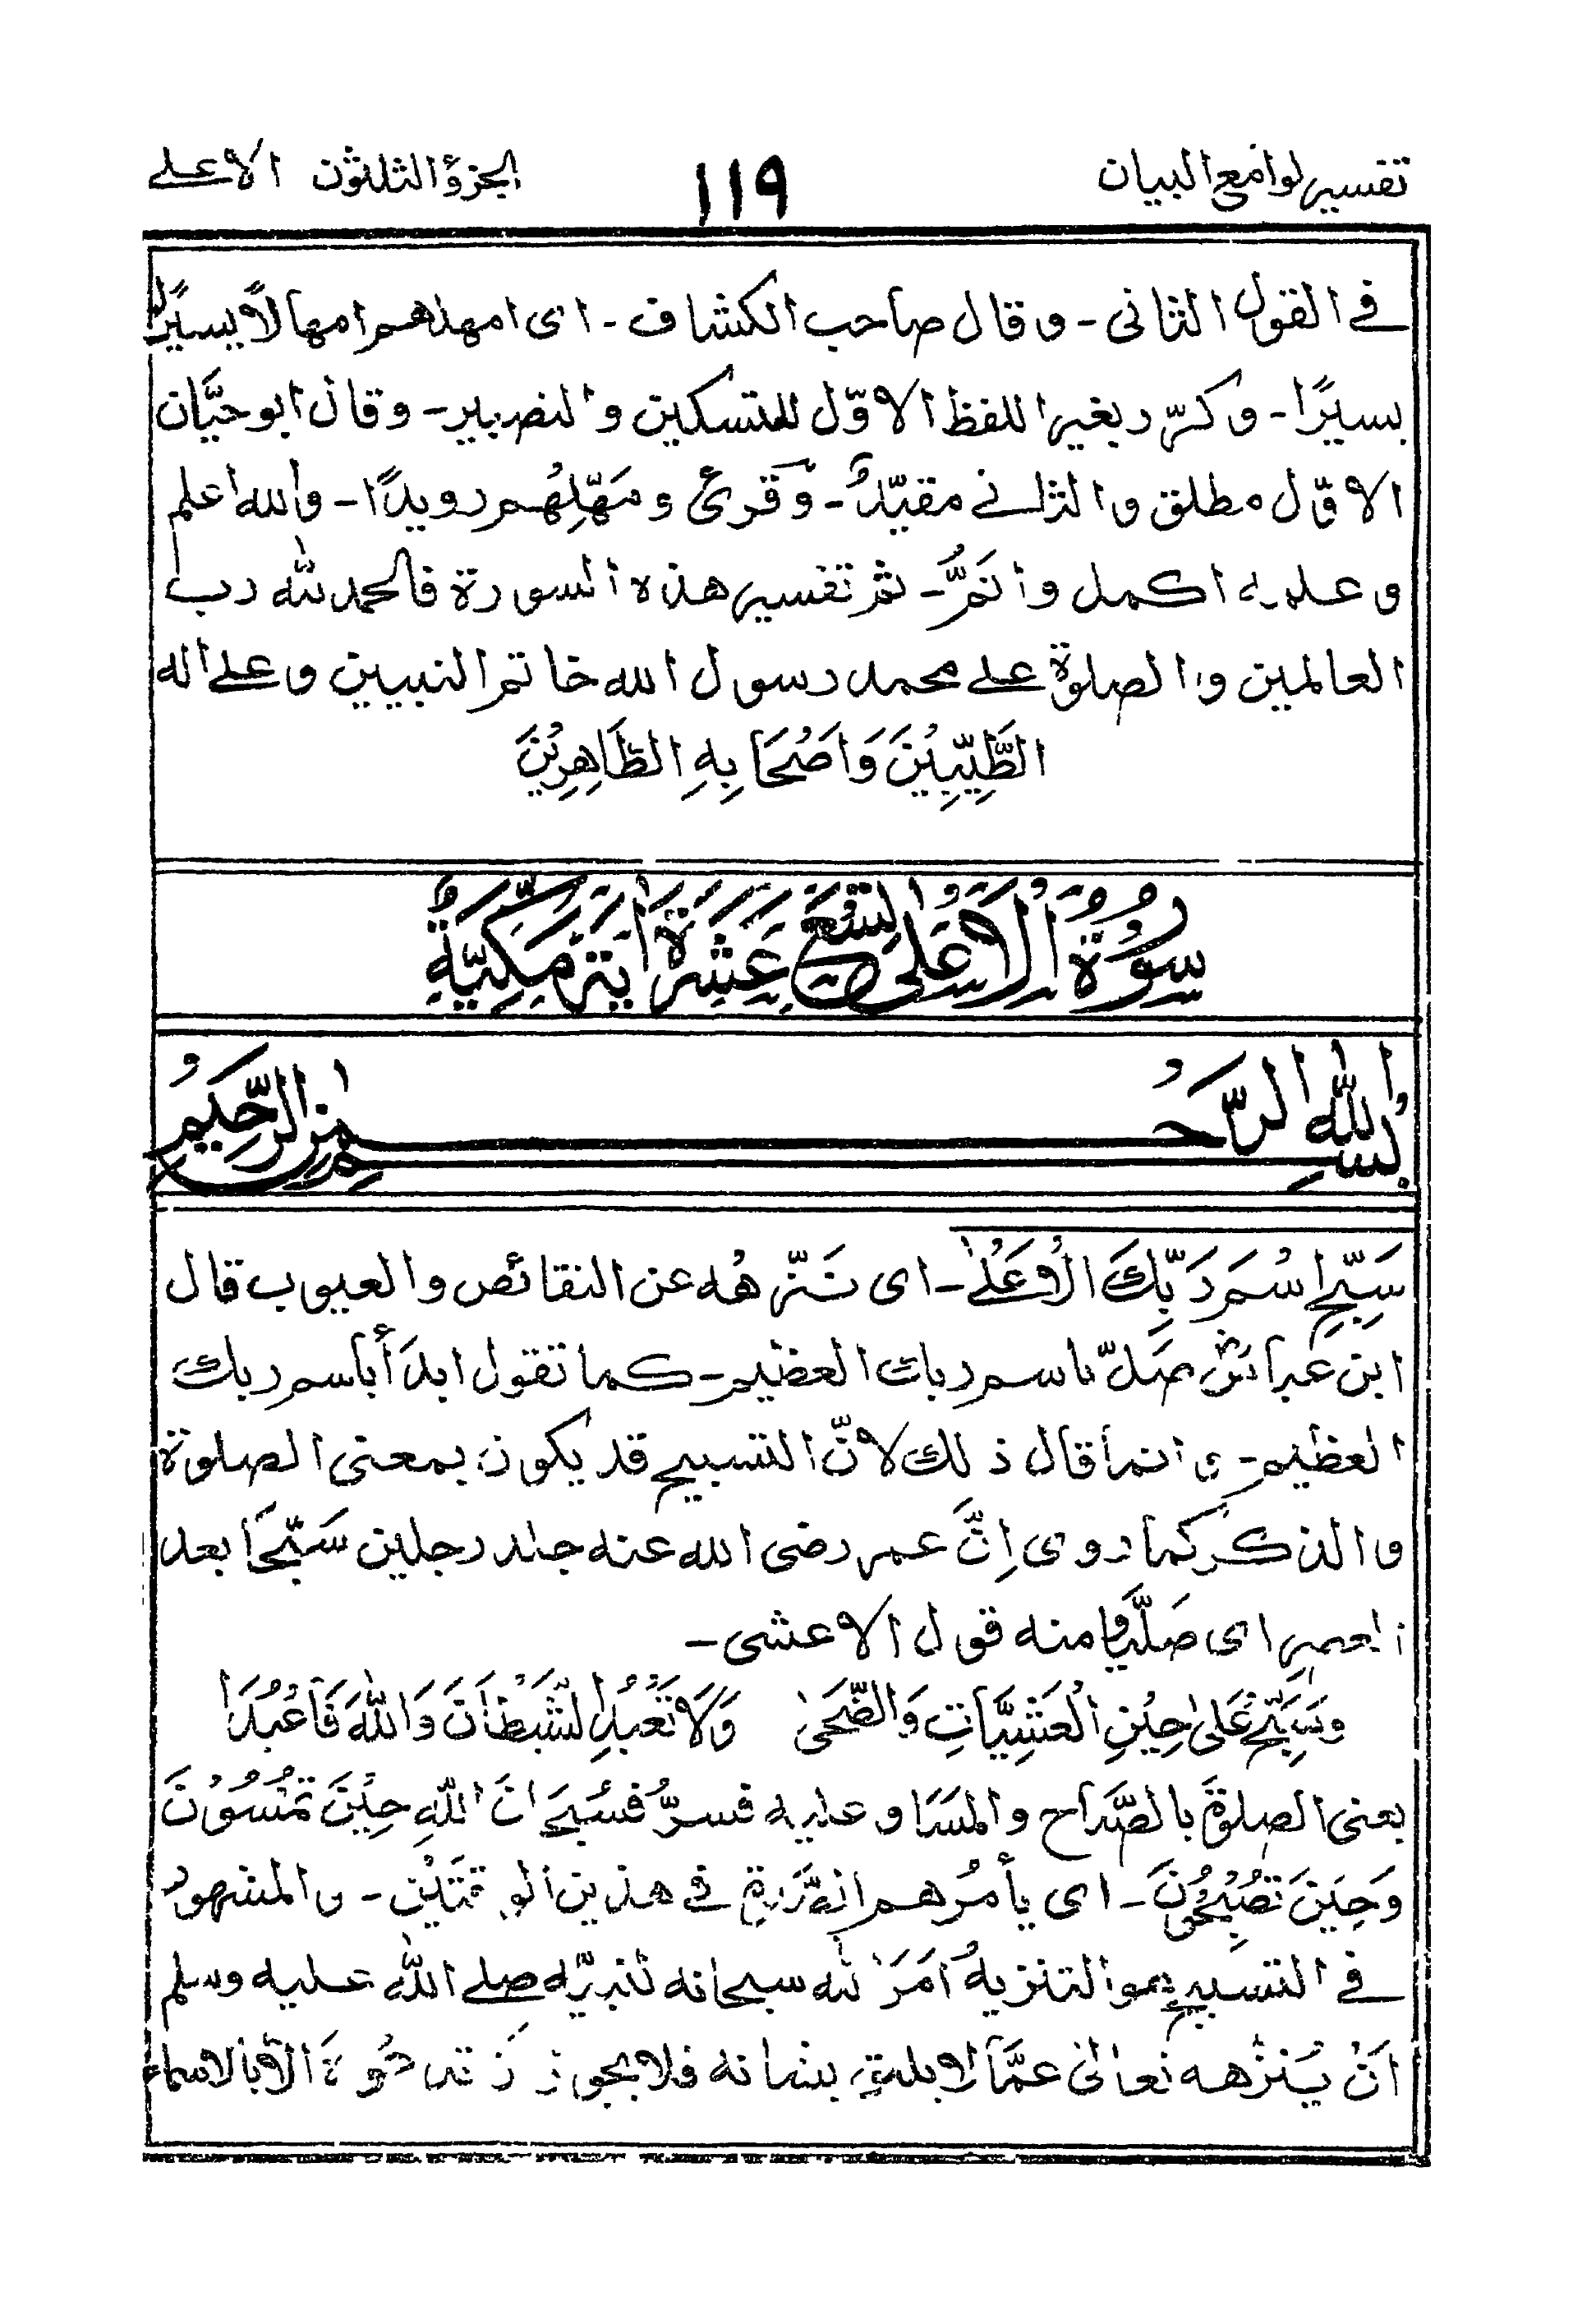 تفسير لوامع البيان ١١٩ الجزؤ الثلثون الاعلى
فى القول الثانى - وقال صاحب الكشاف - اى امهلهم امهالاً يسيراً
يسيرًا - وكرّر بغير اللفظ الاوّل للتسكين والتصبير - وقال ابو حيَّان
الاوّل مطلق والثانى مقيّدٌ - وقرئ ومَهِّلِهُم رويدًا - والله اعلم
وعلمه اكمل واتمُّ - تم تفسير هذه السورة فالحمد لله رب
العالمين والصلوة على محمد رسول الله خاتم النبيين وعلى اله
الطَّيِّبِيْنَ وَاَصْحَابِهِ الطَّاهِرِيْنَ
سُوْرَةُ الْاَعْلٰى تِسْعَ عَشَرَةَ اٰيَةً مَكِّيَّةٌ
بِسْمِ اللهِ الرَّحْمٰنِ الرَّحِيْمِ
سَبِّحِ اسْمَ رَبِّكَ الْاَعْلٰى - اى نَزِّهْهُ عن النقائص والعيوب قال
ابن عباسؓ صَلِّ باسم ربك العظيم - كما تقول ابدَأ باسم ربك
العظيم - وانما قال ذلك لانّ التسبيح قد يكون بمعنى الصلوة
والذكر كما روى اِنَّ عمر رضى الله عنه جلد رجلين سَبَّحَا بعد
العصر اى صَلَّيَا ومنه قول الاعشى -
وَسَبِّحْ عَلٰى حِيْنِ الْعَشِيَّاتِ وَالضُّحٰى وَلَا تَعْبُدِ الشَّيْطَانَ وَاللّٰهَ فَاعْبُدَا
يعنى الصلوةَ بالصَّباح والمَسَا وعليه فسرُّ فَسُبْحَانَ اللّٰهِ حِيْنَ تُمْسُوْنَ
وَحِيْنَ تُصْبِحُوْنَ - اى يأمُرُهم فى هذين الوقتَيْنِ - والمشهور
فى التسبيح هو التنزيهُ اَمَرَ الله سبحانه نبيَّه صلى الله عليه وسلم
اَنْ يُنَزِّهه تعالىٰ عمَّا لا يليق بشانه فلا يجوز الّا بالاسماء